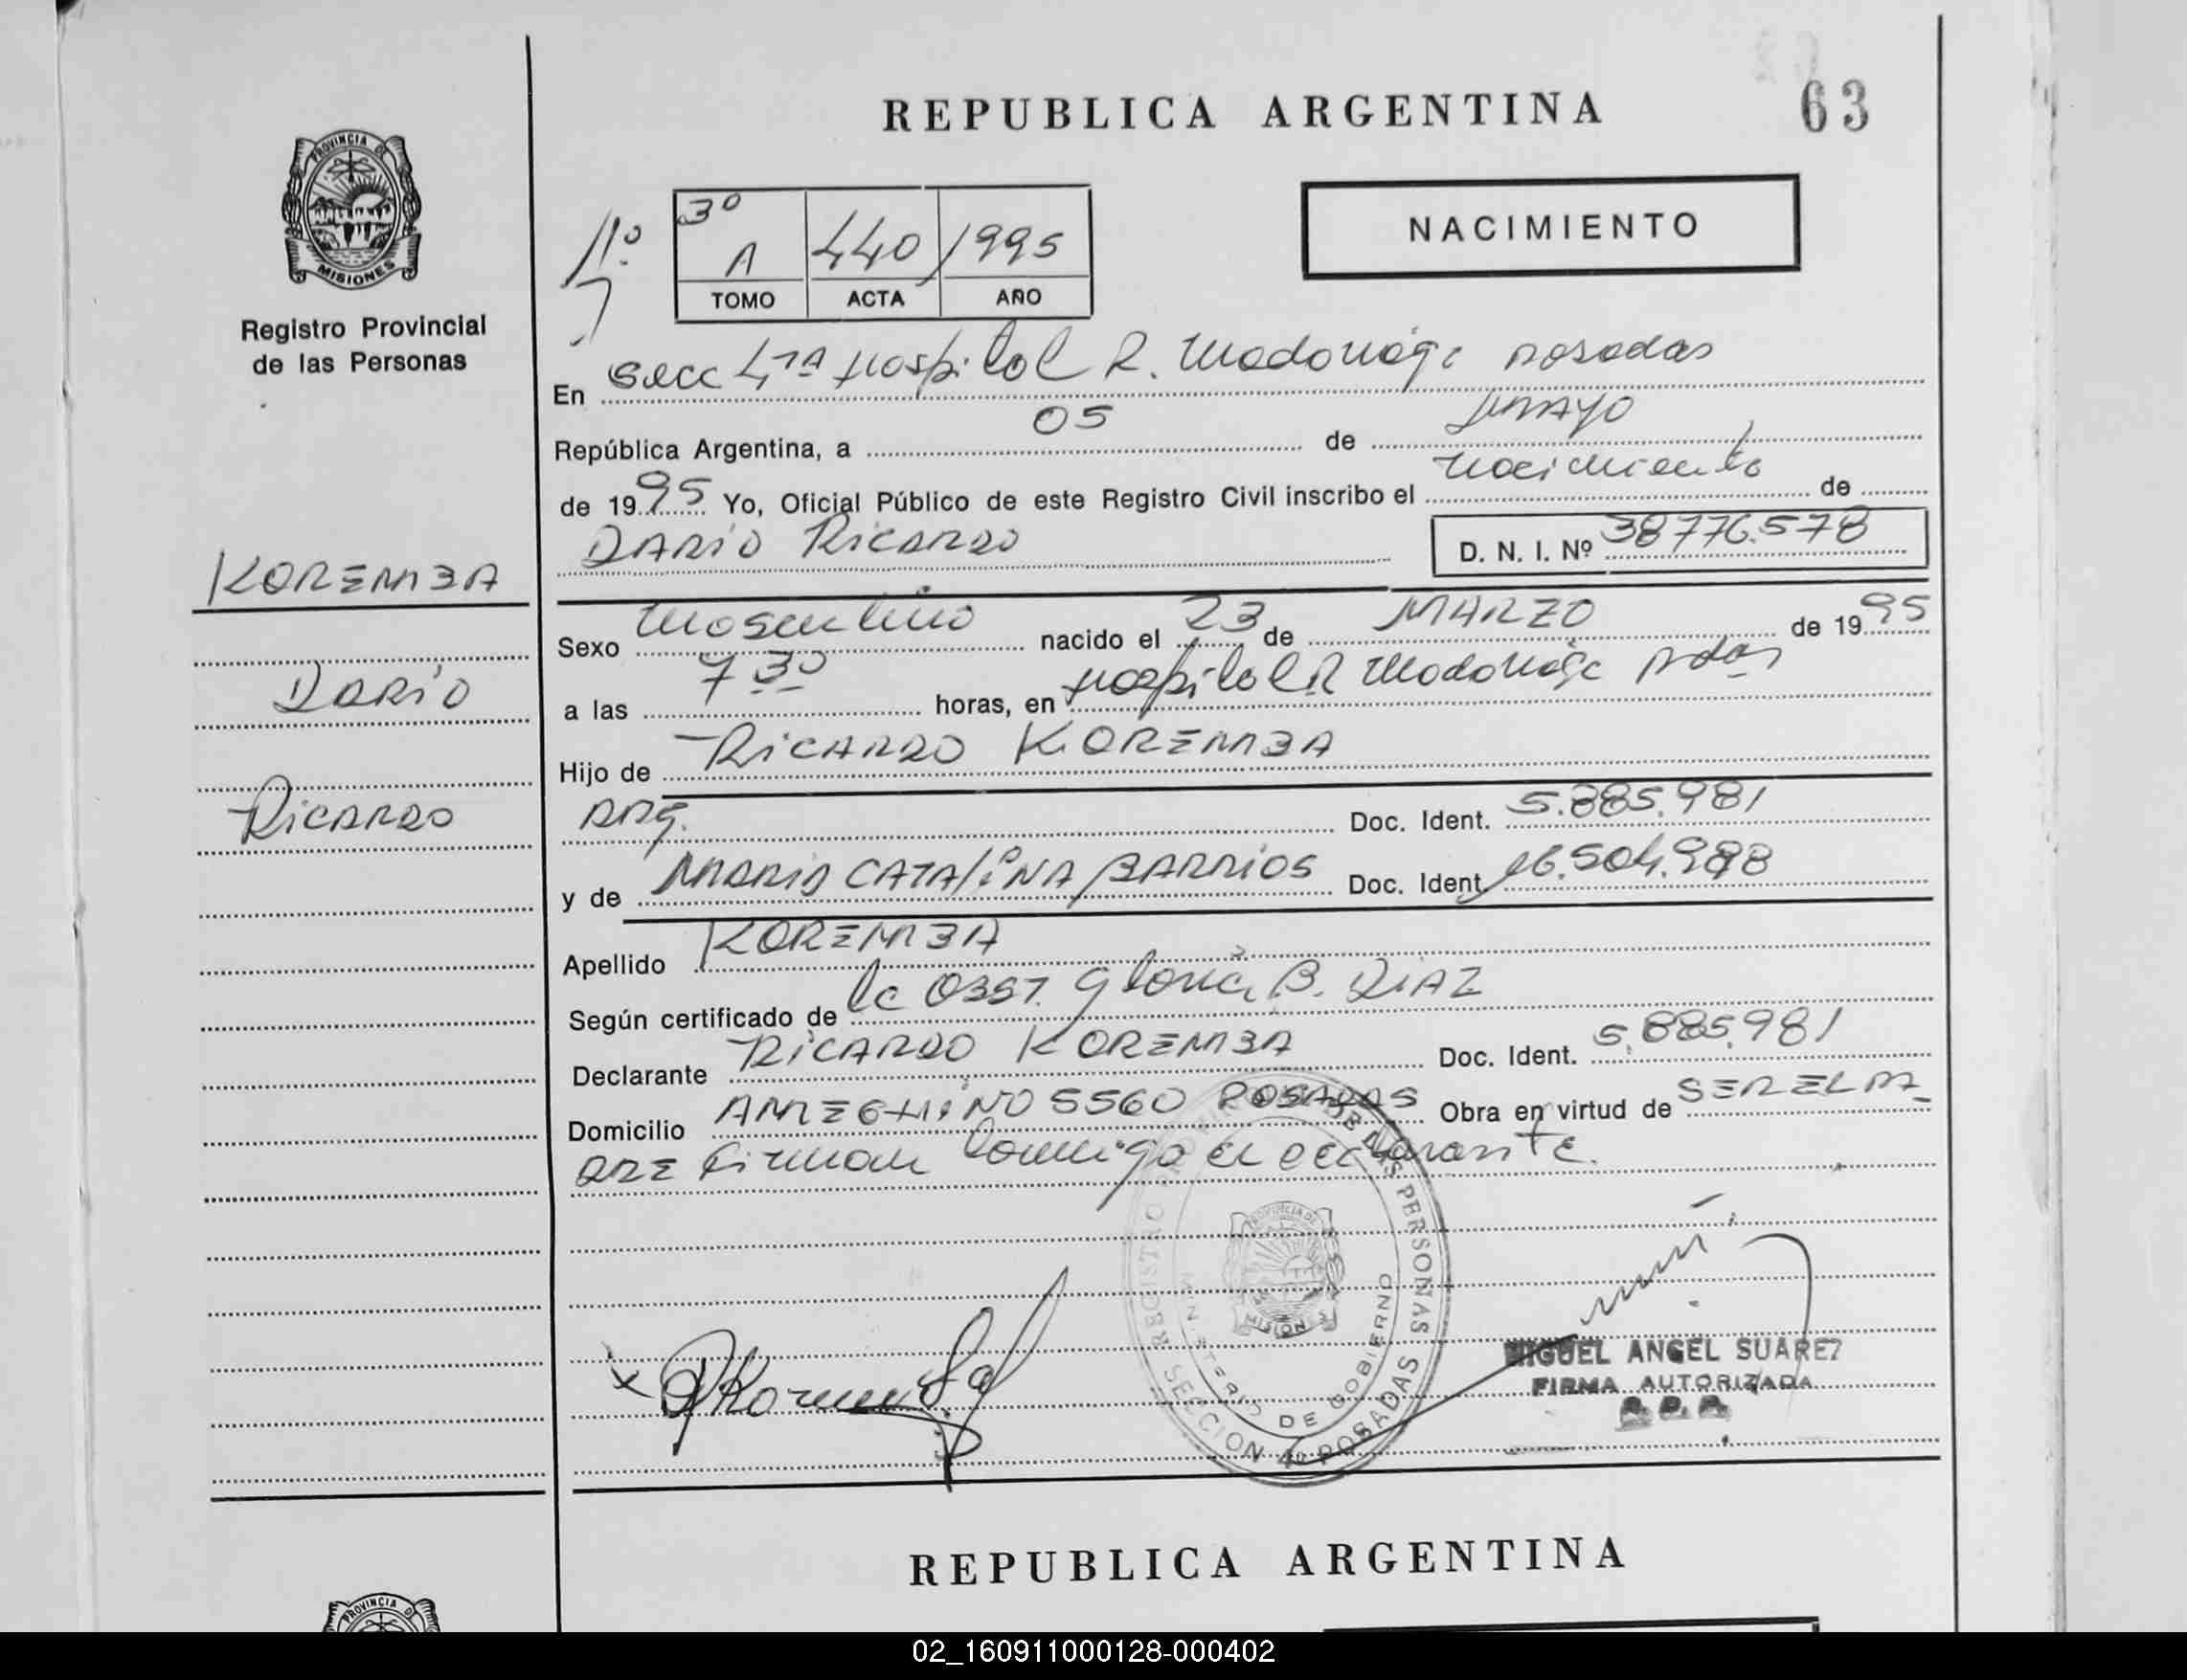 REPUBLICA ARGENTINA
63
PROVINCIA DE
MISIONES
Registro Provincial
de las Personas
3º
A 440 1995
TOMO ACTA AÑO
NACIMIENTO
En Secc 4ta Hospital R. Madariaga Posadas
República Argentina, a 05 de Mayo
de 1995 Yo, Oficial Público de este Registro Civil inscribo el nacimiento de
DARIO RICARDO
D. N. I. Nº 38776.578
KOREMBA
DARIO
RICARDO
Sexo masculino nacido el 23 de MARZO de 1995
a las 7 30 horas, en Hospital R Madariaga Pdas
Hijo de RICARDO KOREMBA
ARG. Doc. Ident. 5.885.981
y de MARIA CATALINA BARRIOS Doc. Ident. 16.504.988
Apellido KOREMBA
Según certificado de la OBST. Gloria B. DIAZ
Declarante RICARDO KOREMBA Doc. Ident. 5.885.981
Domicilio AMEGHINO 5560 POSADAS Obra en virtud de SER EL PA
DRE firman conmigo el declarante.
REGISTRO PROVINCIAL DE LAS PERSONAS
MINISTERIO DE GOBIERNO
SECCION 4ª POSADAS
PROVINCIA DE
MISIONES
MIGUEL ANGEL SUAREZ
FIRMA AUTORIZADA
REPUBLICA ARGENTINA
PROVINCIA DE
02_160911000128-000402